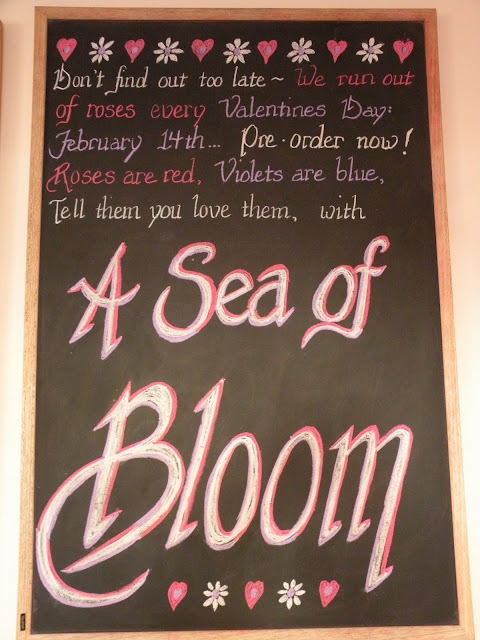 Don't find out too late ~ We run out
of roses every Valentines Day:
February 14th... Pre-order now!
Roses are red, Violets are blue,
Tell them you love them, with
A Sea of
Bloom